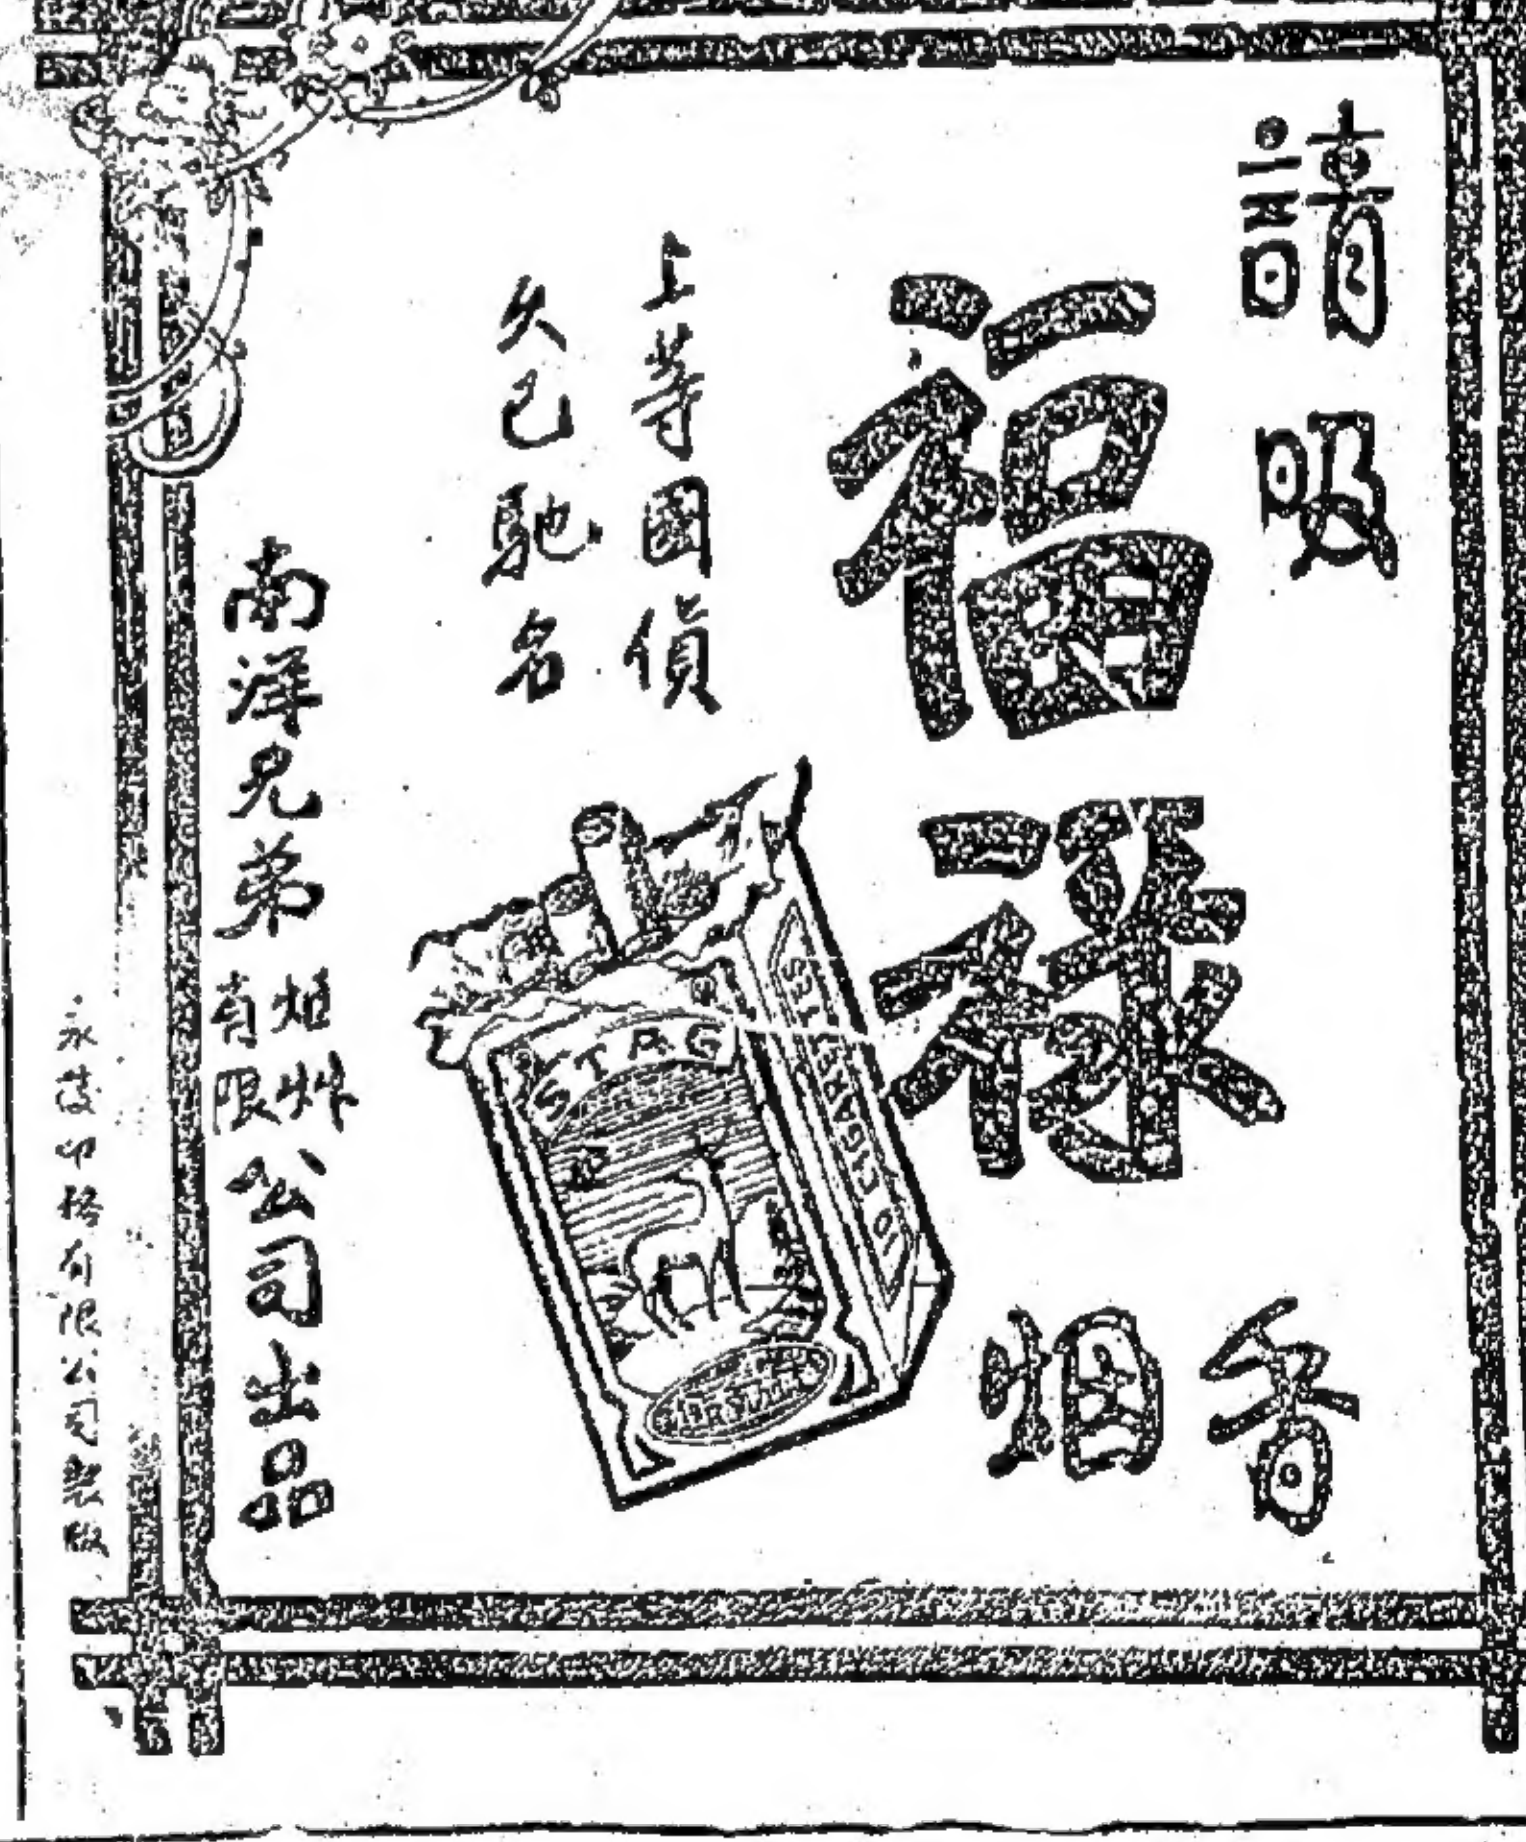 請吸
福祿
香烟
上等國貨
久已馳名
STAG
10 CIGARETTES
南洋兄弟烟艸有限公司出品
永發印務有限公司製版